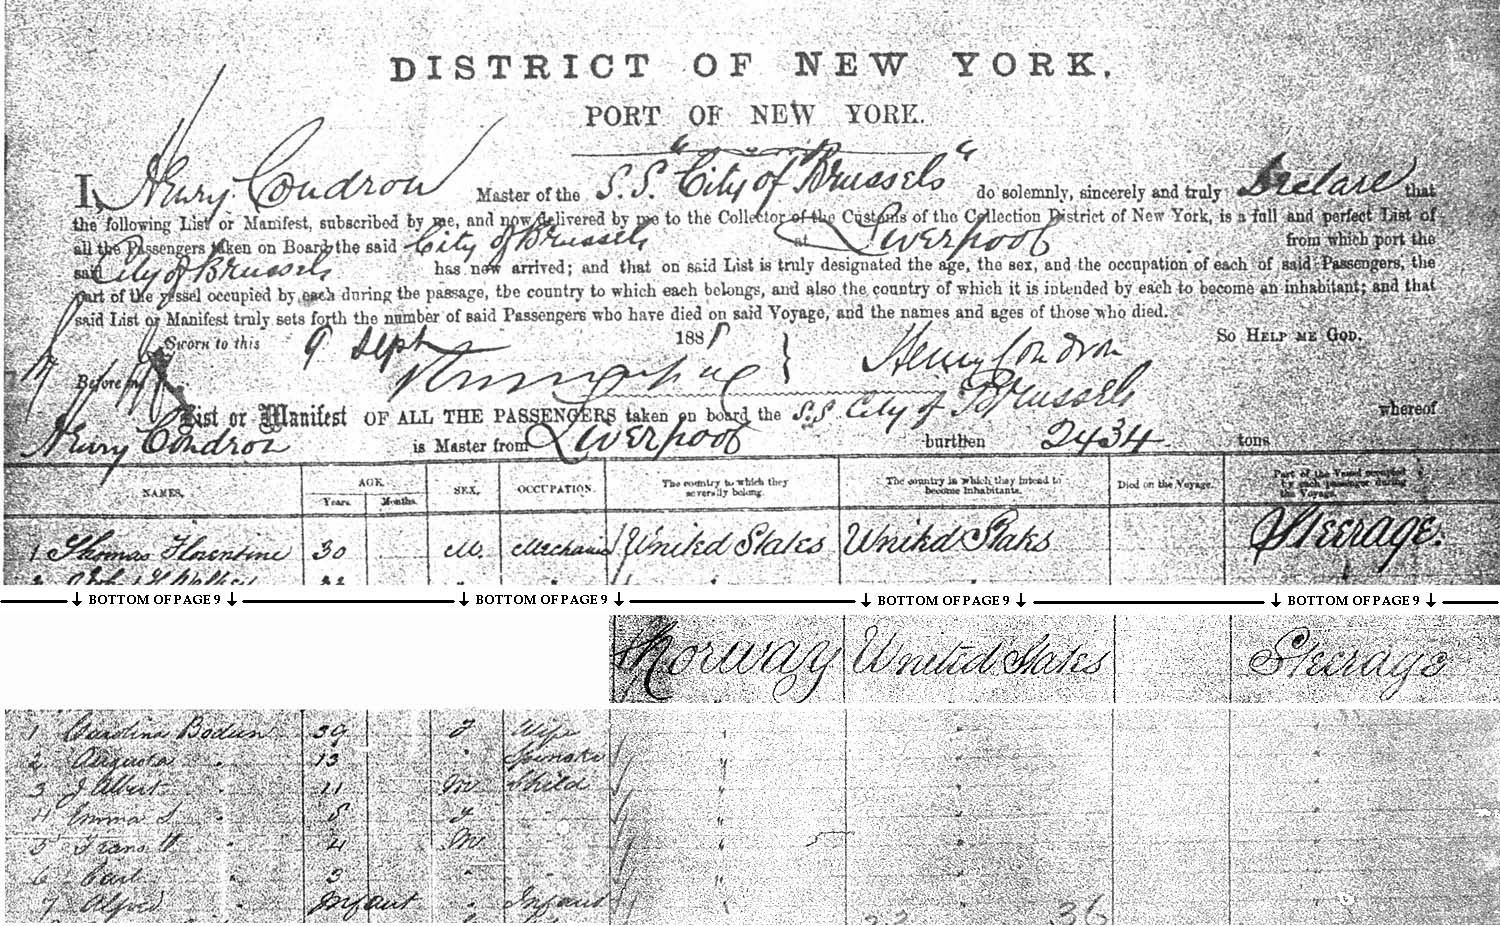 DISTRICT OF NEW YORK.
PORT OF NEW YORK.
I, Henry Condron Master of the S.S. "City of Brussels" do solemnly, sincerely and truly Declare that
the following List or Manifest, subscribed by me, and now delivered by me to the Collector of the Customs of the Collection District of New York, is a full and perfect List of
all the Passengers taken on Board the said City of Brussels at Liverpool from which port the
said City of Brussels has now arrived; and that on said List is truly designated the age, the sex, and the occupation of each of said Passengers, the
part of the vessel occupied by each during the passage, the country to which each belongs, and also the country of which it is intended by each to become an inhabitant; and that
said List or Manifest truly sets forth the number of said Passengers who have died on said Voyage, and the names and ages of those who died.
Sworn to this 9 Sept 1881 So Help me God.
Before me Henry Condron
List or Manifest OF ALL THE PASSENGERS taken on board the S.S. City of Brussels whereof
Henry Condron is Master from Liverpool burthen 2434 tons
NAMES. AGE. Years. Months. SEX. OCCUPATION. The country to which they severally belong. The country in which they intend to become Inhabitants. Died on the Voyage. Part of the Vessel occupied by each passenger during the Voyage.
1 Thomas Florentine 30 M. Mechanic United States United States Steerage.
↓ BOTTOM OF PAGE 9 ↓ ↓ BOTTOM OF PAGE 9 ↓ ↓ BOTTOM OF PAGE 9 ↓ ↓ BOTTOM OF PAGE 9 ↓
Norway United States Steerage
1 Carolina Bodien 39 F Wife " " "
2 Augusta " 13 " Spinster " " "
3 J Albert " 11 M Child " " "
4 Emma S " 8 F " " " "
5 Frans " 4 M " " " "
6 Carl " 3 " " " " "
7 Alfred " Infant " Infant " " "
36